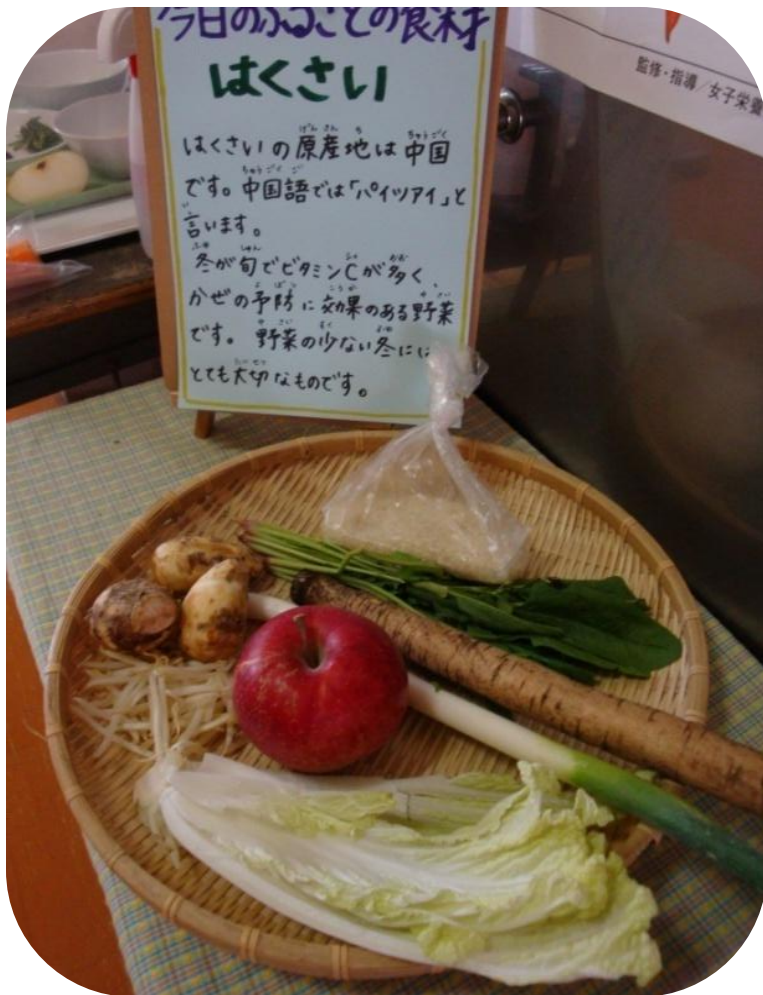 今日のふるさとの食材
はくさい
はくさいの原産地は中国
です。中国語では「パイツァイ」と
言います。
冬が旬でビタミンCが多く、
かぜの予防に効果のある野菜
です。野菜の少ない冬には
とても大切なものです。
監修・指導／女子栄養